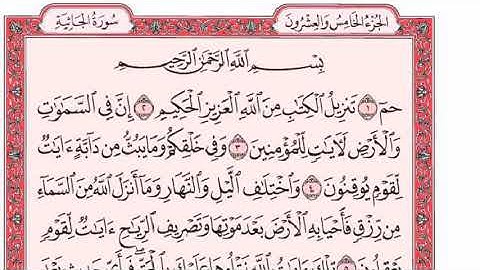 الجزء الخامس والعشرون سورة الجاثية
بِسْمِ اللَّهِ الرَّحْمَٰنِ الرَّحِيمِ
حمٓ ١ تَنزِيلُ الْكِتَابِ مِنَ اللَّهِ الْعَزِيزِ الْحَكِيمِ ٢ إِنَّ فِي السَّمَاوَاتِ
وَالْأَرْضِ لَآيَاتٍ لِّلْمُؤْمِنِينَ ٣ وَفِي خَلْقِكُمْ وَمَا يَبُثُّ مِن دَابَّةٍ ءَايَاتٌ
لِّقَوْمٍ يُوقِنُونَ ٤ وَاخْتِلَافِ اللَّيْلِ وَالنَّهَارِ وَمَا أَنزَلَ اللَّهُ مِنَ السَّمَاءِ
مِن رِّزْقٍ فَأَحْيَا بِهِ الْأَرْضَ بَعْدَ مَوْتِهَا وَتَصْرِيفِ الرِّيَاحِ ءَايَاتٌ لِّقَوْمٍ
يَعْقِلُونَ ٥ تِلْكَ ءَايَاتُ اللَّهِ نَتْلُوهَا عَلَيْكَ بِالْحَقِّ فَبِأَيِّ حَدِيثٍ بَعْدَ